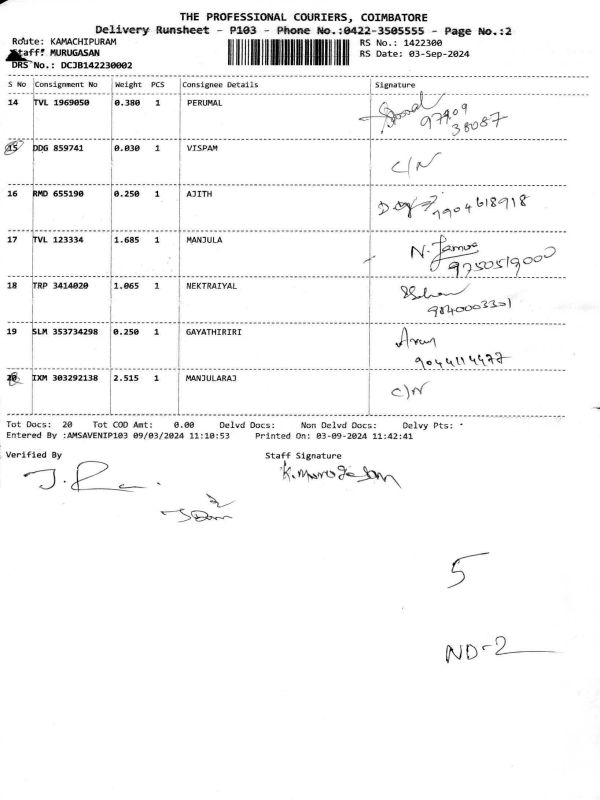 THE PROFESSIONAL COURIERS, COIMBATORE
Delivery Runsheet - P103 - Phone No.:0422-3505555 - Page No.:2
Route: KAMACHIPURAM RS No.: 1422300
Staff: MURUGASAN RS Date: 03-Sep-2024
DRS No.: DCJB142230002
S No Consignment No Weight PCS Consignee Details Signature
14 TVL 1969050 0.380 1 PERUMAL
97909
38087
15 DDG 859741 0.030 1 VISPAM
C/N
16 RMD 655190 0.250 1 AJITH
9904618918
17 TVL 123334 1.685 1 MANJULA
N.
9750519000
18 TRP 3414020 1.065 1 NEKTRAIYAL
9840003301
19 SLM 353734298 0.250 1 GAYATHIRIRI
Arun
9044114477
20 IXM 303292138 2.515 1 MANJULARAJ
C/N
Tot Docs: 20 Tot COD Amt: 0.00 Delvd Docs: Non Delvd Docs: Delvy Pts:
Entered By :AMSAVENIP103 09/03/2024 11:10:53 Printed On: 03-09-2024 11:42:41
Verified By Staff Signature
K.Murugesan
5
ND-2